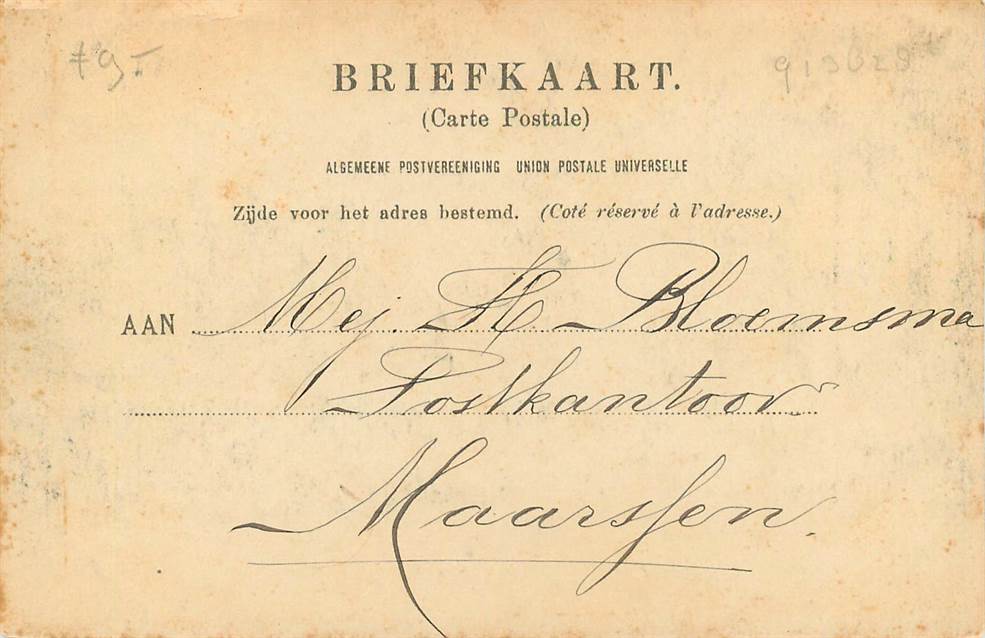 BRIEFKAART.
(Carte Postale)
ALGEMEENE POSTVEREENIGING UNION POSTALE UNIVERSELLE
Zijde voor het adres bestemd. (Coté réservé à l'adresse.)
AAN Mej. H. Bloemsma
Postkantoor
Maarssen.